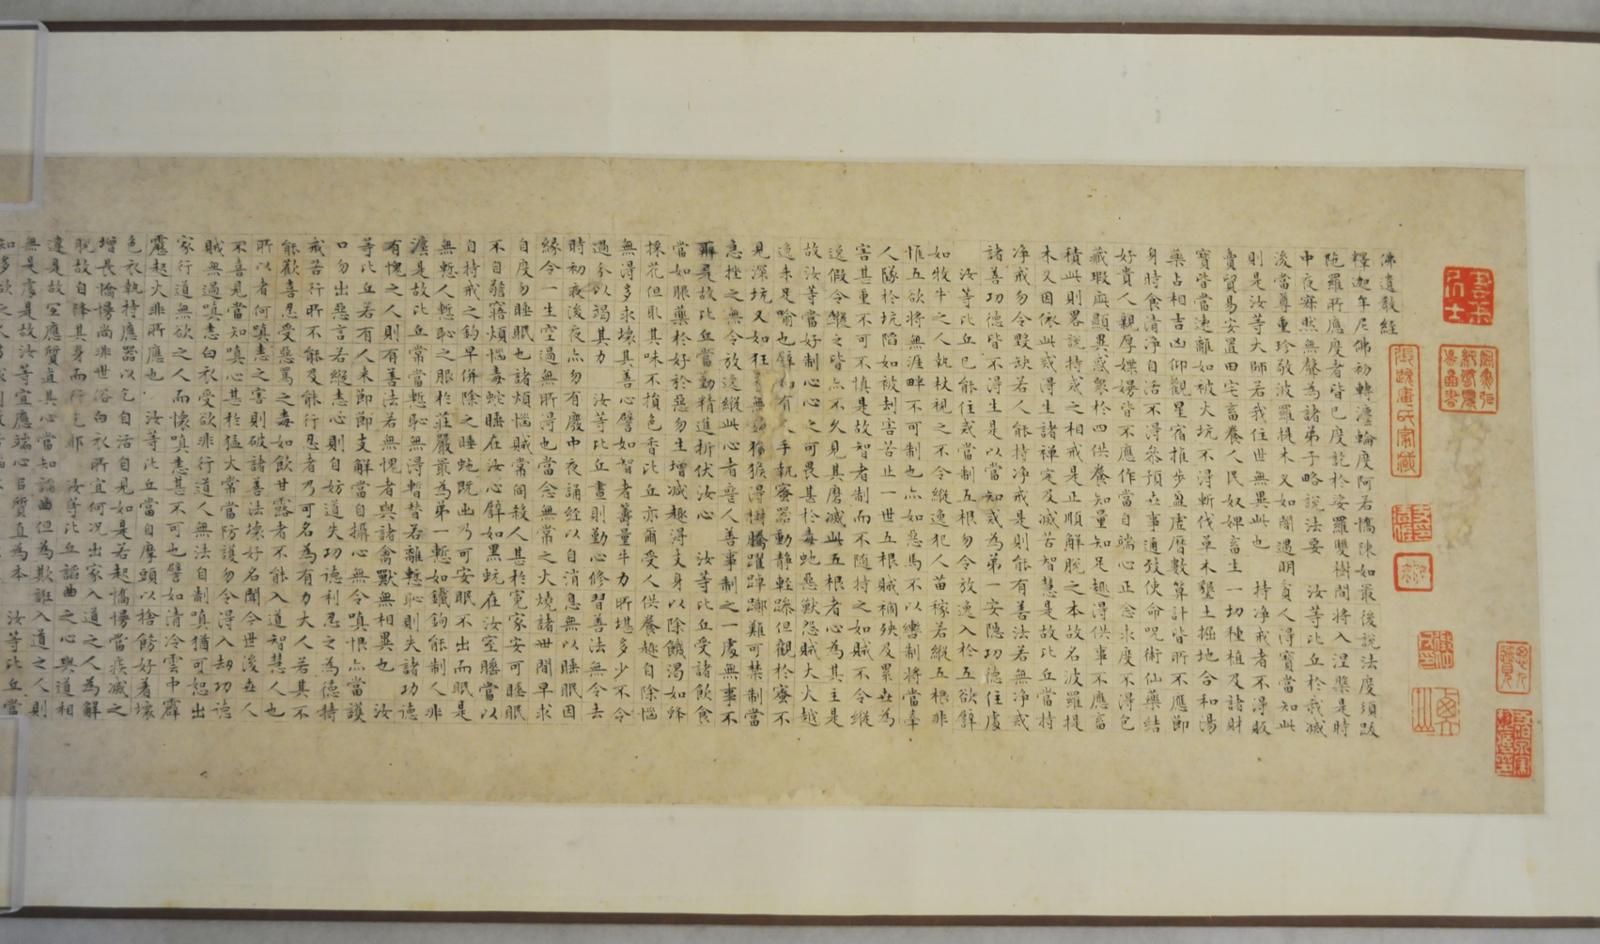 佛遺教經
釋迦牟尼佛初轉法輪度阿若憍陳如最後說法度須跋
陁羅所應度者皆已度訖於娑羅雙樹間將入涅槃是時
中夜寂然無聲為諸弟子略說法要　汝等比丘於我滅
後當尊重珍敬波羅提木叉如闇遇明貧人得寶當知此
則是汝等大師若我住世無異此也　持淨戒者不得販
賣貿易安置田宅畜養人民奴婢畜生一切種植及諸財
寶皆當遠離如被火坑不得斬伐草木墾土掘地合和湯
藥占相吉凶仰觀星宿推步盈虛曆數算計皆所不應節
身時食清淨自活不得參預世事通致使命呪術仙藥結
好貴人親厚媟嫚皆不應作當自端心正念求度不得包
藏瑕疵顯異惑眾於四供養知量知足趣得供事不應畜
積此則略說持戒之相戒是正順解脫之本故名波羅提
木叉因依此戒得生諸禪定及滅苦智慧是故比丘當持
淨戒勿令毀缺若人能持淨戒是則能有善法若無淨戒
諸善功德皆不得生是以當知戒為第一安隱功德住處
汝等比丘已能住戒當制五根勿令放逸入於五欲譬
如牧牛之人執杖視之不令縱逸犯人苗稼若縱五根非
惟五欲將無涯畔不可制也亦如惡馬不以轡制將當牽
人墜於坑陷如被劫害苦止一世五根賊禍殃及累世為
害甚重不可不慎是故智者制而不隨持之如賊不令縱
逸假令縱之皆亦不久見其磨滅此五根者心為其主是
故汝等當好制心心之可畏甚於毒蛇惡獸怨賊大火越
逸未足喻也譬如有人手執蜜器動靜輕躁但觀於蜜不
見深坑又如狂象無鉤猿猴得樹騰躍踔躑難可禁制當
急挫之無令放逸縱此心者喪人善事制之一處無事不
辦是故比丘當勤精進折伏汝心　汝等比丘受諸飲食
當如服藥於好於惡勿生增減趣得支身以除飢渴如蜂
採花但取其味不損色香比丘亦爾受人供養趣自除惱
無得多求壞其善心譬如智者籌量牛力所堪多少不令
過分以竭其力　汝等比丘晝則勤心修習善法無令失
時初夜後夜亦勿有廢中夜誦經以自消息無以睡眠因
緣令一生空過無所得也當念無常之火燒諸世間早求
自度勿睡眠也諸煩惱賊常伺殺人甚於寃家安可睡眠
不自驚寤煩惱毒蛇睡在汝心譬如黑蚖在汝室睡當以
自持戒之鉤早併除之睡蛇既出乃可安眠不出而眠是
無慙人慙恥之服於莊嚴最為第一慙如鐵鉤能制人非
法是故比丘常當慙恥無得暫替若離慙恥則失諸功德
有愧之人則有善法若無愧者與諸禽獸無相異也　汝
等比丘若有人來節節支解當自攝心無令嗔恨亦當護
口勿出惡言若縱恚心則自妨道失功德利忍之為德持
戒苦行所不能及能行忍者乃可名為有力大人若其不
能歡喜忍受惡罵之毒如飲甘露者不能入道智慧人也
所以者何嗔恚之害則破諸善法壞好名聞今世後世人
不喜見當知嗔心甚於猛火常當防護勿令得入劫功德
賊無過嗔恚白衣受欲非行道人無法自制嗔猶可恕出
家行道無欲之人而懷嗔恚甚不可也譬如清冷雲中霹
靂起火非所應也　汝等比丘當自摩頭以捨飾好著壞
色衣執持應器以乞自活自見如是若起憍慢當疾滅之
增長憍慢尚非世俗白衣所宜何況出家入道之人為解
脫故自降其身而行乞耶　汝等比丘諂曲之心與道相
違是故宜應質直其心當知諂曲但為欺誑入道之人則
無是處是故汝等宜應端心以質直為本　汝等比丘當